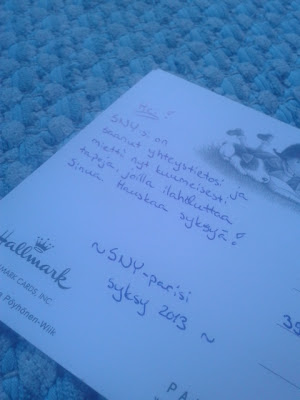 Hei !
SNY:si on
saanut yhteystietosi ja
miettii nyt kuumeisesti
tapoja joilla ilahduttaa
Sinua. Hauskaa syksyä!
~SNY-parisi
syksy 2013 ~
Hallmark
MARK CARDS, INC.
Pöyhönen-Wiik
35
P A